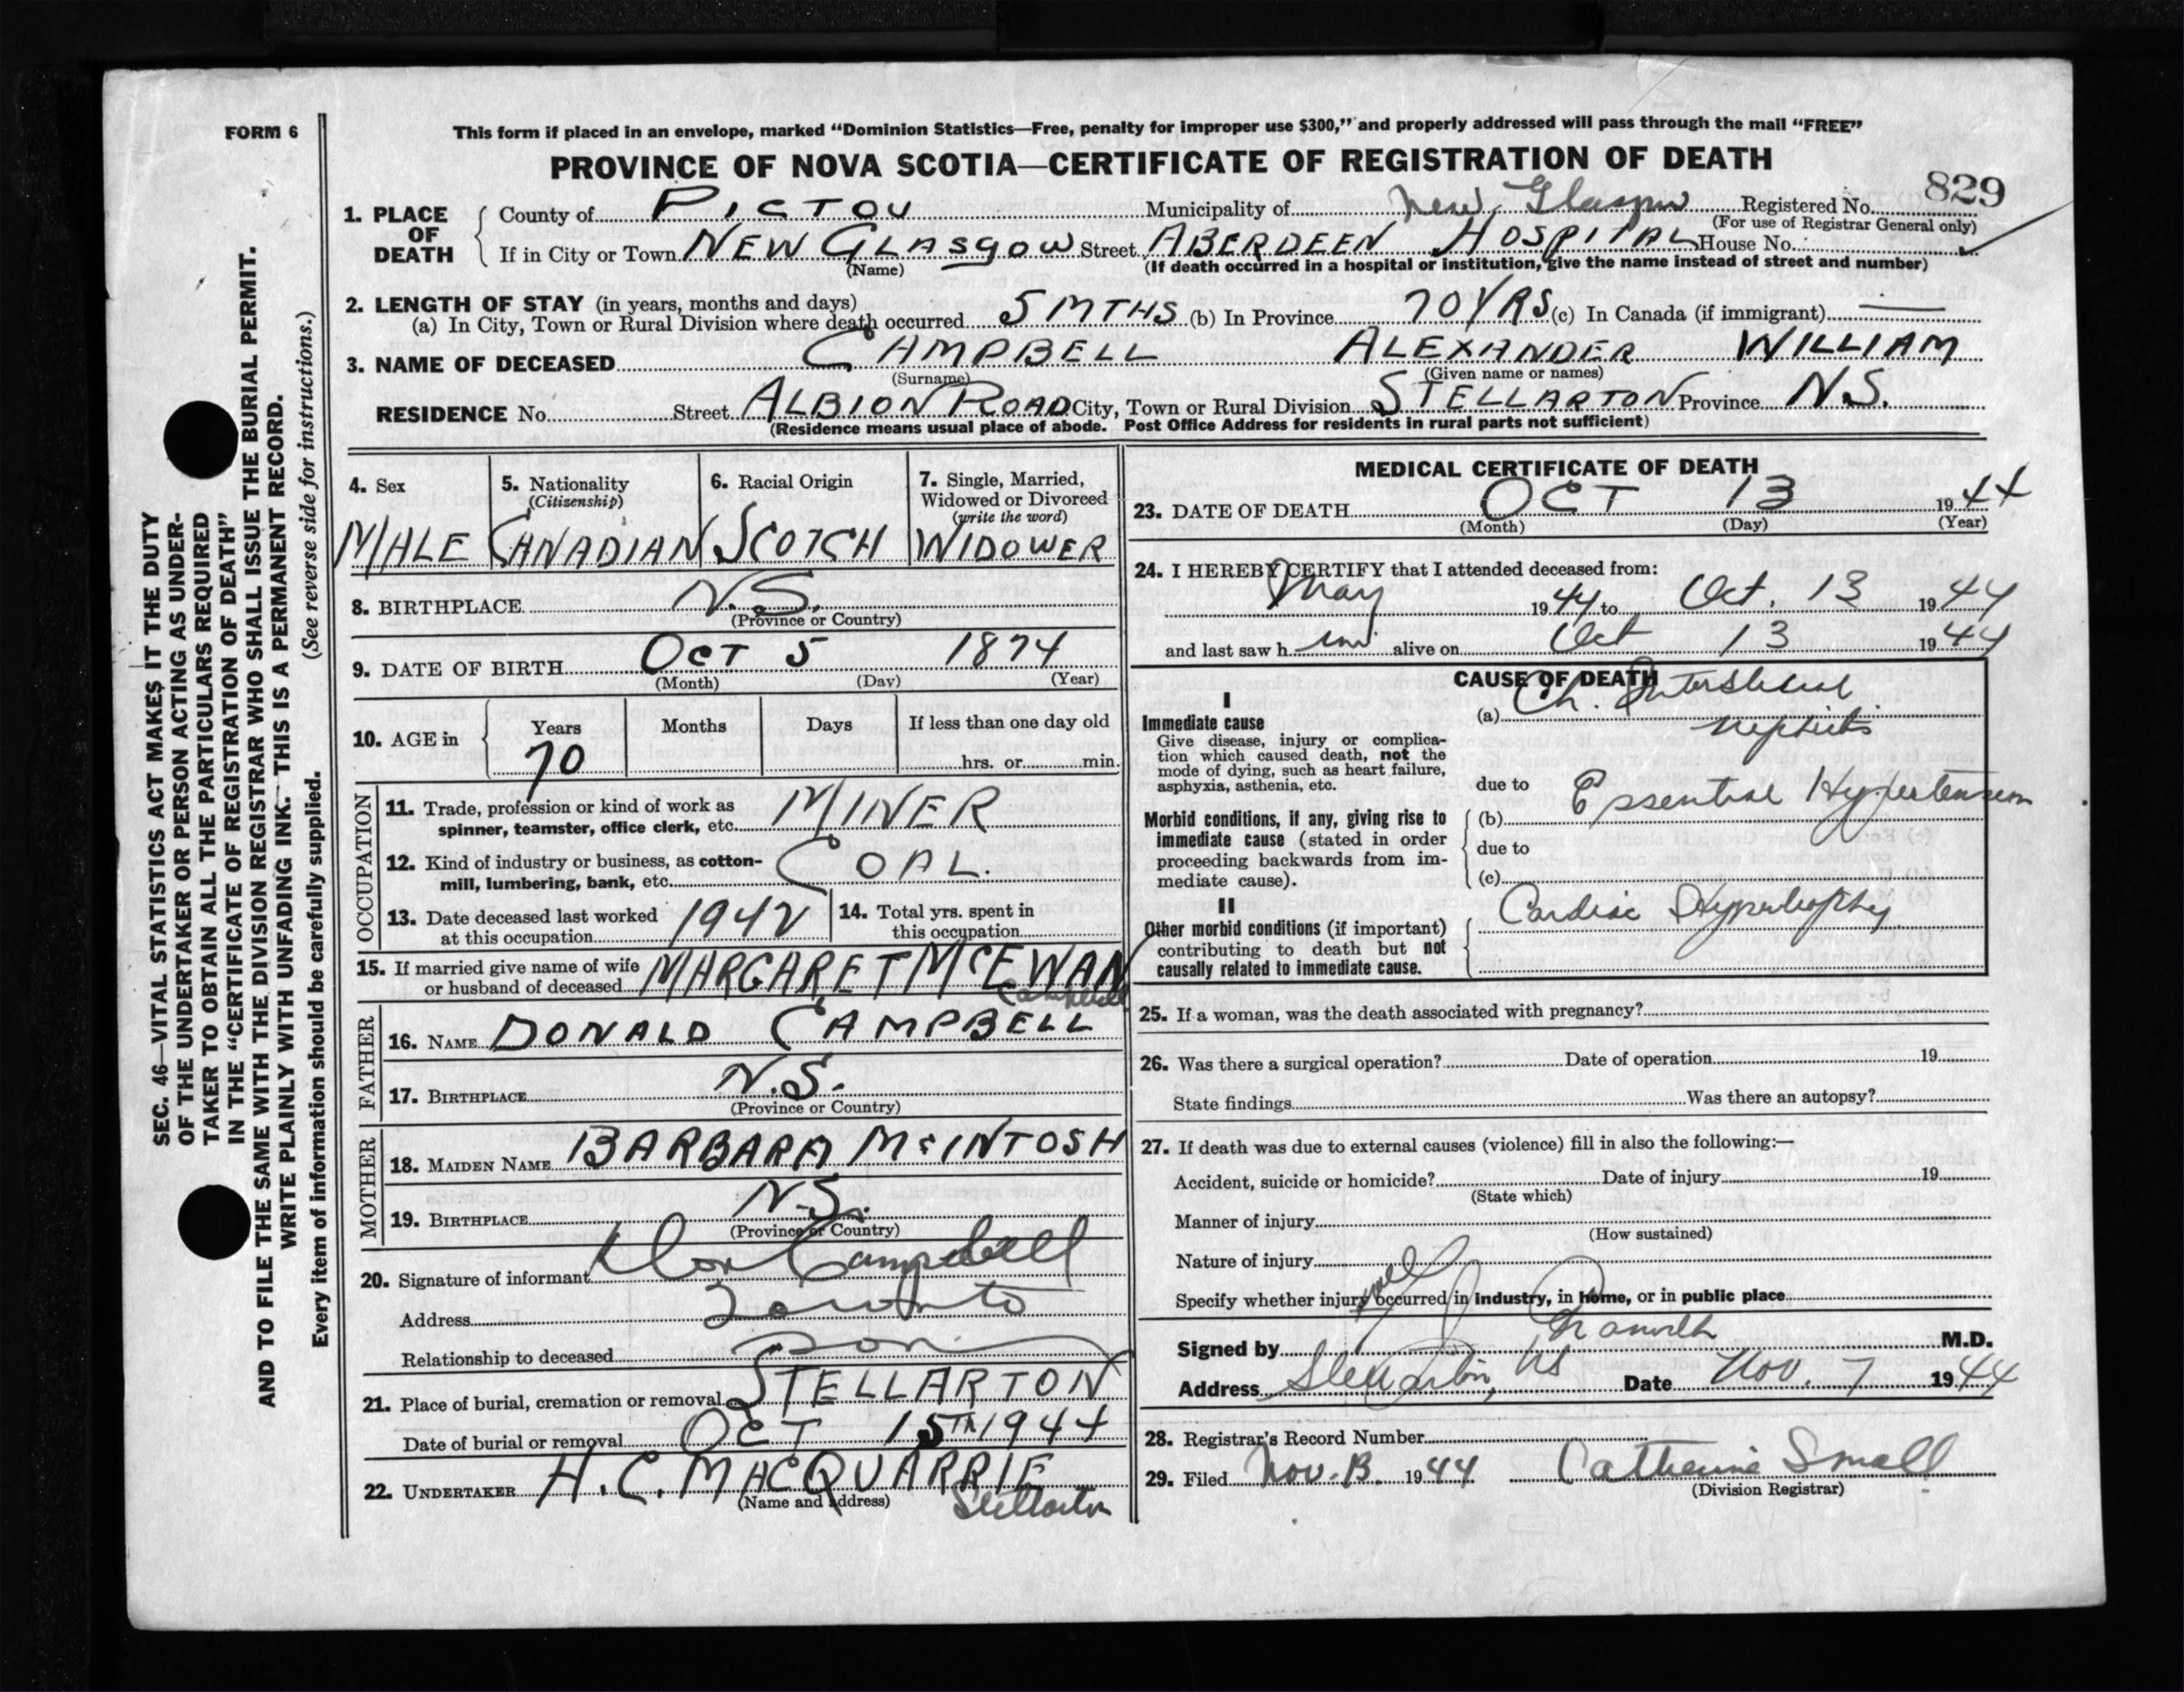 FORM 6
This form if placed in an envelope, marked “Dominion Statistics—Free, penalty for improper use $300,” and properly addressed will pass through the mail “FREE”
PROVINCE OF NOVA SCOTIA—CERTIFICATE OF REGISTRATION OF DEATH
829
1. PLACE OF DEATH County of PICTOU Municipality of New Glasgow Registered No.
(For use of Registrar General only)
If in City or Town NEW GLASGOW Street ABERDEEN HOSPITAL House No.
(Name) (If death occurred in a hospital or institution, give the name instead of street and number)
2. LENGTH OF STAY (in years, months and days)
(a) In City, Town or Rural Division where death occurred 5 MTHS (b) In Province 70 YRS (c) In Canada (if immigrant) —
3. NAME OF DECEASED CAMPBELL ALEXANDER WILLIAM
(Surname) (Given name or names)
RESIDENCE No. Street ALBION ROAD City, Town or Rural Division STELLARTON Province N.S.
(Residence means usual place of abode. Post Office Address for residents in rural parts not sufficient)
4. Sex
MALE
5. Nationality
(Citizenship)
CANADIAN
6. Racial Origin
SCOTCH
7. Single, Married,
Widowed or Divorced
(write the word)
WIDOWER
8. BIRTHPLACE N.S.
(Province or Country)
9. DATE OF BIRTH OCT 5 1874
(Month) (Day) (Year)
10. AGE in Years Months Days If less than one day old
70 hrs. or min.
OCCUPATION
11. Trade, profession or kind of work as
spinner, teamster, office clerk, etc. MINER
12. Kind of industry or business, as cotton-
mill, lumbering, bank, etc. COAL.
13. Date deceased last worked
at this occupation 1942
14. Total yrs. spent in
this occupation
15. If married give name of wife
or husband of deceased MARGARET McEWAN
Campbell
FATHER
16. NAME DONALD CAMPBELL
17. BIRTHPLACE N.S.
(Province or Country)
MOTHER
18. MAIDEN NAME BARBARA McINTOSH
19. BIRTHPLACE N.S.
(Province or Country)
20. Signature of informant Don Campbell
Address Toronto
Relationship to deceased Son
21. Place of burial, cremation or removal STELLARTON
Date of burial or removal OCT 15TH 1944
22. UNDERTAKER H. C. MACQUARRIE
(Name and address) Stellarton
MEDICAL CERTIFICATE OF DEATH
23. DATE OF DEATH OCT 13 1944
(Month) (Day) (Year)
24. I HEREBY CERTIFY that I attended deceased from:
May 1944 to Oct. 13 1944
and last saw him alive on Oct 13 1944
CAUSE OF DEATH
I
Immediate cause
Give disease, injury or complica-
tion which caused death, not the
mode of dying, such as heart failure,
asphyxia, asthenia, etc.
(a) Ch. Interstitial
nephritis
due to
Morbid conditions, if any, giving rise to
immediate cause (stated in order
proceeding backwards from im-
mediate cause).
(b) Essential Hypertension
due to
(c)
II
Other morbid conditions (if important)
contributing to death but not
causally related to immediate cause.
Cardiac Hypertrophy
25. If a woman, was the death associated with pregnancy?
26. Was there a surgical operation? Date of operation 19
State findings Was there an autopsy?
27. If death was due to external causes (violence) fill in also the following:—
Accident, suicide or homicide? Date of injury 19
(State which)
Manner of injury
(How sustained)
Nature of injury
Specify whether injury occurred in industry, in home, or in public place
Signed by M.D.
Address Stellarton, NS Date Nov. 7 1944
28. Registrar's Record Number
29. Filed Nov. 13 1944 Catherine Small
(Division Registrar)
SEC. 46—VITAL STATISTICS ACT MAKES IT THE DUTY
OF THE UNDERTAKER OR PERSON ACTING AS UNDER-
TAKER TO OBTAIN ALL THE PARTICULARS REQUIRED
IN THE “CERTIFICATE OF REGISTRATION OF DEATH”
AND TO FILE THE SAME WITH THE DIVISION REGISTRAR WHO SHALL ISSUE THE BURIAL PERMIT.
WRITE PLAINLY WITH UNFADING INK. THIS IS A PERMANENT RECORD.
Every item of information should be carefully supplied. (See reverse side for instructions.)